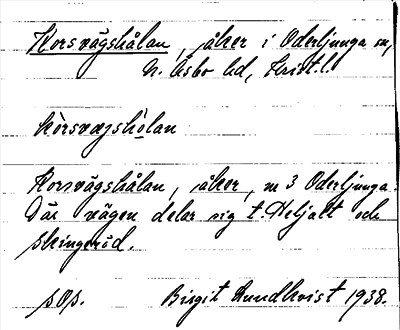 Korsvägshålan, åker i Oderljunga sn,
N. Åsbo hd, Krist.l.
kòrsvægshòlan
Korsvägshålan, åker, nr 3 Oderljunga.
Där vägen delar sig t. Heljalt och
Skingeröd.
sOp. Birgit Lundkvist 1938.